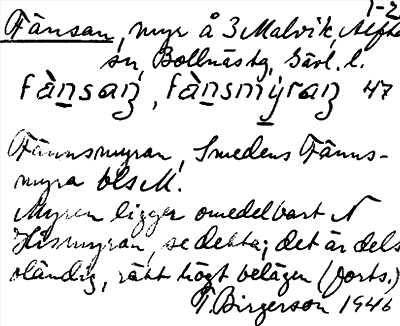 1-2
Fänsan, myr å 3 Malvik, Alfta
sn, Bollnäs tg, Gävl. l.
fànsan, fànsmýran 47
Fännsmyran, Smedens Fänns-
myra bls M.
Myren ligger omedelbart N
Hismyran, se detta; det är dels
oländig, rätt högt belägen (forts.)
T. Birgerson 1946